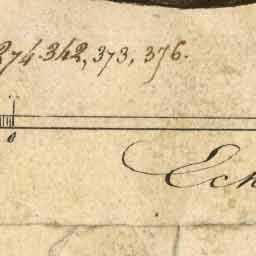 274.342, 373, 376.
0
Ech